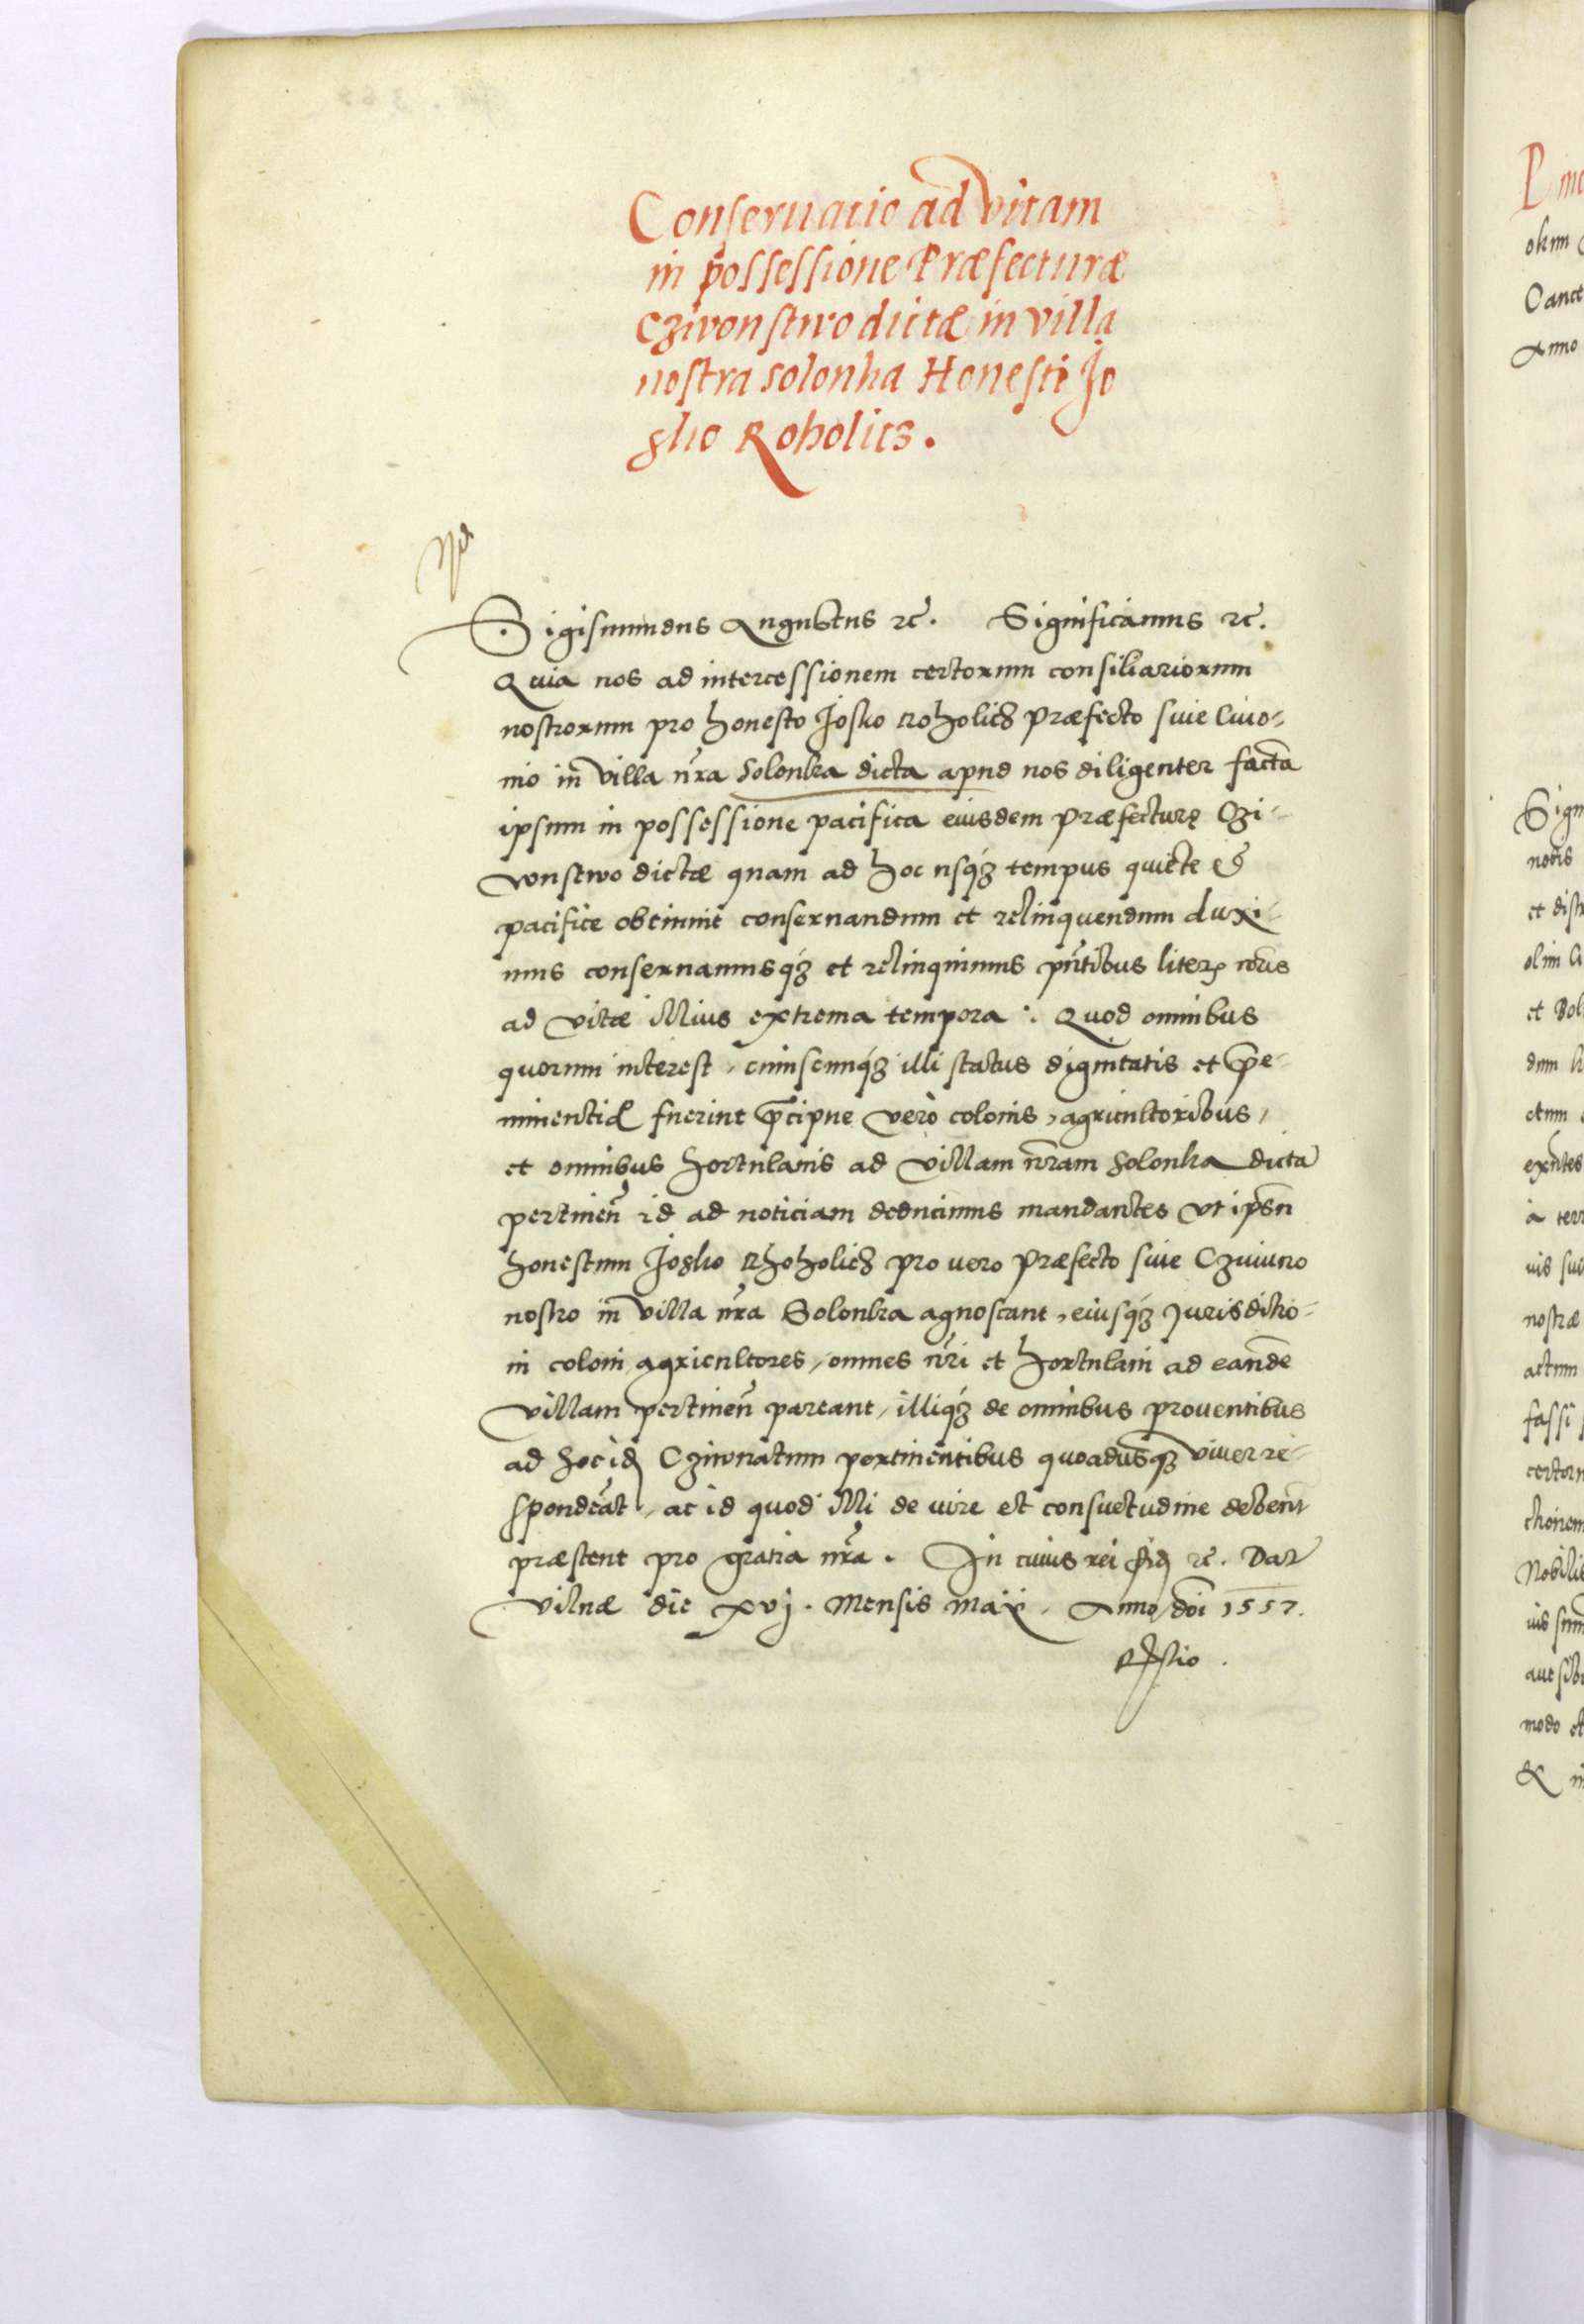 Conseruatio ad vitam
in possessione Præfecturæ
Czivonstwo dictæ in villa
nostra solonka Honesti Jo
sko Roholics.
Sigismundus Augustus ꝛc̄. Significamus ꝛc̄.
Quia nos ad intercessionem certorum consiliariorum
nostrorum pro honesto Josko Roholicz præfecto siue Ciuo-
nio in villa nr̄a Solonka dicta apud nos diligenter factā
ipsum in possessione pacifica eiusdem præfecturę Czi-
vonstwo dictæ quam ad hoc usqꝫ tempus quiete &
pacifice obtinuit conseruandum et relinquendum duxi-
mus conseruamusqꝫ et relinquimus pn̄tibus literꝭ nr̄is
ad vitæ illius extrema tempora. Quod omnibus
quorum interest, cuiuscunqꝫ illi status dignitatis et p̄e-
minentiæ fuerint p̄cipue verò colonis, agricultoribus,
et omnibus hortulanis ad villam nr̄am Solonka dictā
pertineñ id ad noticiam deducimus mandantes vt ipsū
honestum Josko Rhoholicz pro uero præfecto siue Cziuuno
nostro in villa nr̄a Solonka agnoscant, eiusqꝫ Jurisdictio-
ni coloni agricultores, omnes nr̄i et hortulani ad eandē
villam pertineñ pareant, illiqꝫ de omnibus prouentibus
ad hoc Cziwonatum pertinentibus quoadusqꝫ vixerit re-
spondeāt, ac id quod illi de iure et consuetudine debent
præstent pro gratia nr̄a. In cuius rei fidē ꝛc̄. Dat
vilnæ die xvj. Mensis Maij. Anno dn̄i 1557.